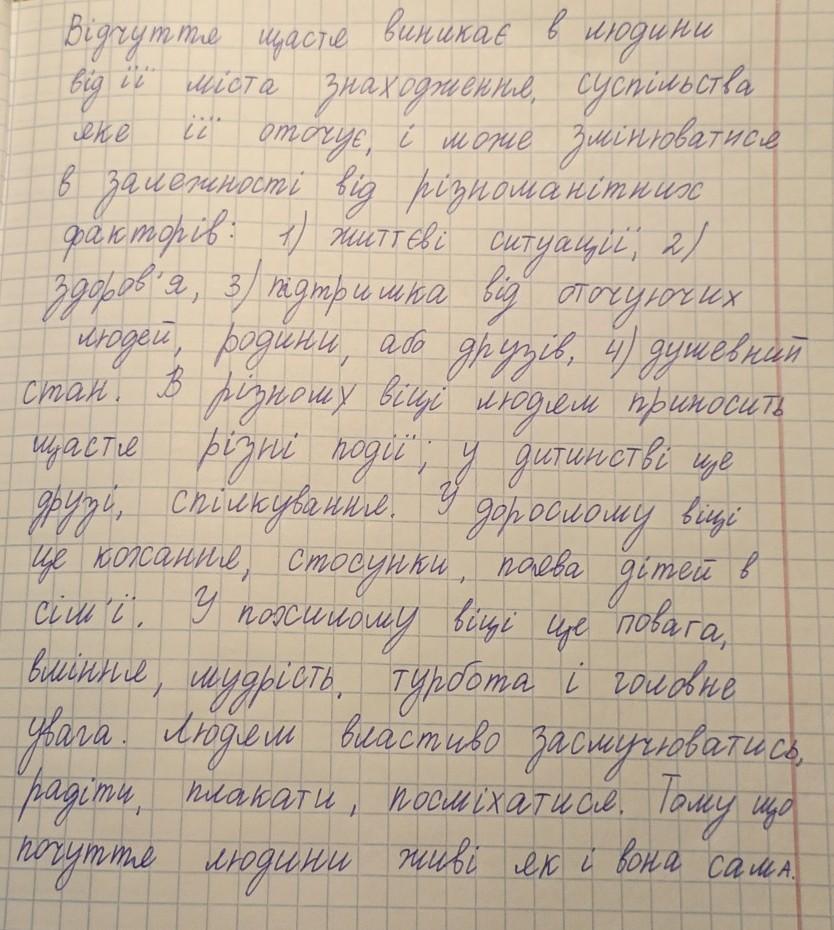 Відчуття щастя виникає в людини
від її міста знаходження, суспільства
яке її оточує, і може змінюватися
в залежності від різноманітних
факторів: 1) життєві ситуації, 2)
здоров'я, 3) підтримка від оточуючих
людей, родини, або друзів, 4) душевний
стан. В різному віці людям приносить
щастя різні події; у дитинстві це
друзі, спілкування. У дорослому віці
це кохання, стосунки, поява дітей в
сім'ї. У похилому віці це повага,
вміння, мудрість, турбота і головне
увага. Людям властиво засмучюватись,
радіти, плакати, посміхатися. Тому що
почуття людини живі як і вона сама.